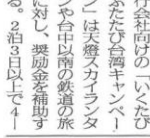 行会社向けの「いくたび
ふたたび台湾キャンペー
ン」は天燈スカイランタ
ンや台中以南の鉄道の旅
に対し、奨励金を補助す
る。2泊3日以上で4―